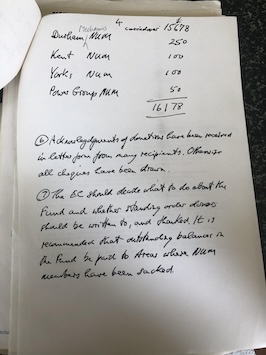 4 carried over 15678
Durham Mechanics NUM 250
Kent NUM 100
Yorks NUM 100
Power Group NUM 50
16178
⑥ Acknowledgments of donations have been received
in letter form from many recipients. Otherwise
all cheques have been drawn.
⑦ The EC should decide what to do about the
Fund and whether standing order donors
should be written to, and thanked. It is
recommended that outstanding balances in
the Fund be paid to Areas where NUM
members have been sacked.